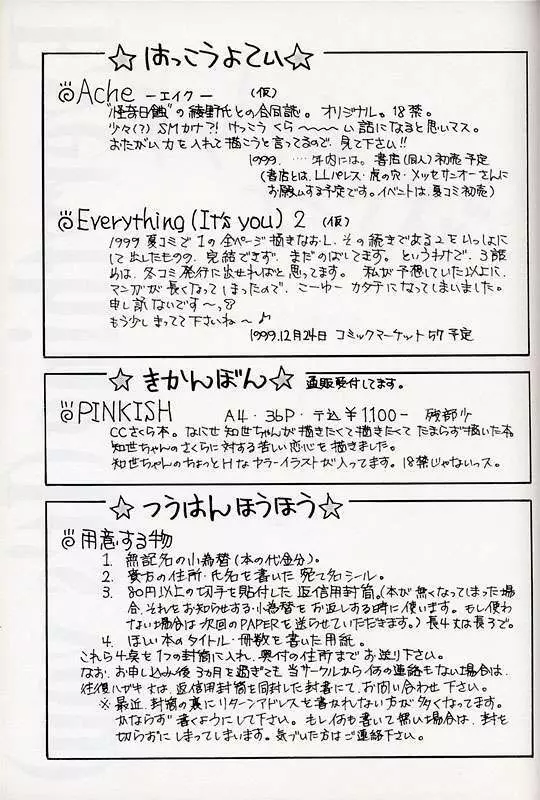 ☆はっこうよてい☆
Ache —エイク— (仮)
"怪奇日蝕"の綾野氏との合同誌。オリジナル。18禁。
少々(?)SMカナ?! けっこうくら〜〜〜〜い話になると思いマス。
おたがい力を入れて描こうと言ってるので、見て下さい!!
1999. ‥‥年内には。書店(同人)初売予定
(書店とは、LLパレス・虎の穴・メッセサンオーさんに
お願いする予定です。イベントは、夏コミ初売)
Everything (It's you) 2 (仮)
1999夏コミで1の全ページ描きなおし、その続きである2をいっしょに
して出したものの、完結できず、まだのばしてます。というわけで、3話
めは、冬コミ発行に出せればと思ってます。私が予想していた以上に、
マンガが長くなってしまったので、こーゆーカタチになってしまいました。
申し訳ないです〜っ
もう少しまってて下さいね〜♪
1999.12月24日 コミックマーケット57予定
☆きかんぼん☆ 通販受付してます。
PINKISH A4・36P・〒込¥1100- 残部少
CCさくら本。なにせ知世ちゃんが描きたくて描きたくてたまらず描いた本。
知世ちゃんのさくらに対する苦しい恋心を描きました。
知世ちゃんのちょっとHなカラーイラストが入ってます。18禁じゃないっス。
☆つうはんほうほう☆
用意する物
1. 無記名の小為替(本の代金分)。
2. 貴方の住所・氏名を書いた宛て名シール。
3. 80円以上の切手を貼付した返信用封筒。(本が無くなってしまった場
合、それをお知らせする・小為替をお返しする時に使います。もし使わ
ない場合は次回のPAPERを送らせていただきます。)長4又は長3で。
4. ほしい本のタイトル・冊数を書いた用紙。
これら4点を1つの封筒に入れ、奥付の住所までお送り下さい。
なお、お申し込み後3ヵ月を過ぎても当サークルから何の連絡もない場合は、
往復ハガキ又は、返信用封筒を同封した封書にて、お問い合わせ下さい。
※最近、封筒の裏にリターンアドレスを書かれない方が多くなってます。
かならず書くようにして下さい。もし何も書いて無い場合は、封を
切らずにしまってしまいます。気づいた方はご連絡下さい。